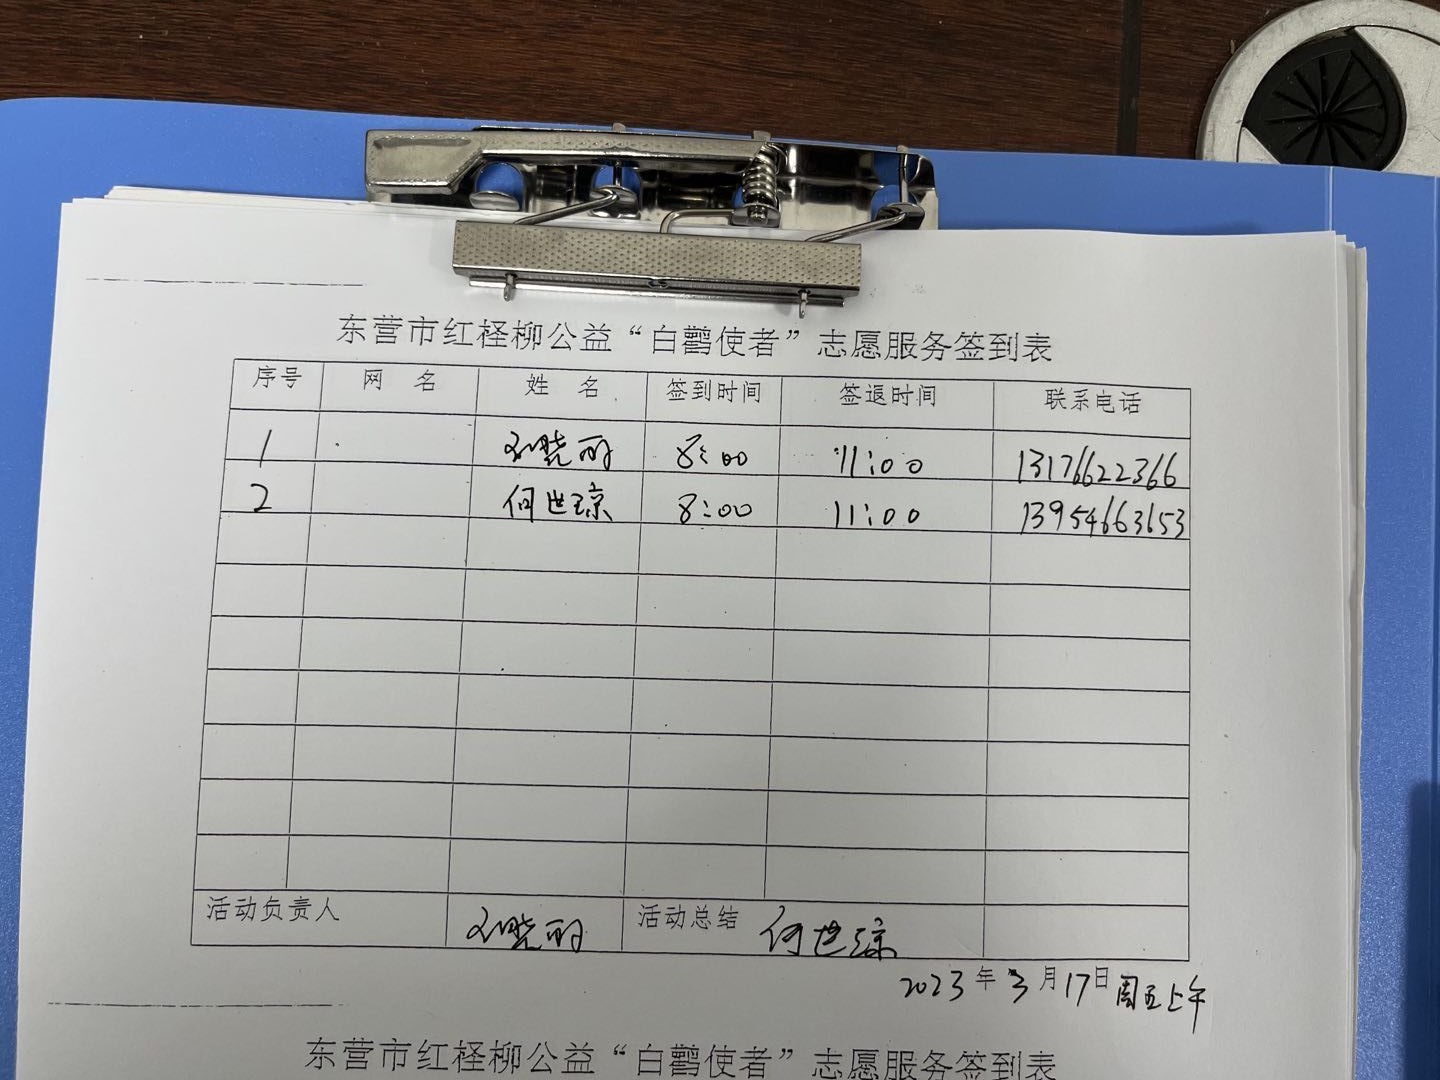 东营市红柽柳公益“白鹳使者”志愿服务签到表
序号 网 名 姓 名 签到时间 签退时间 联系电话
1 刘晓丽 8:00 11:00 13176622366
2 何世琼 8:00 11:00 13954663653
活动负责人 刘晓丽 活动总结 何世琼
2023年3月17日周五上午
东营市红柽柳公益“白鹳使者”志愿服务签到表